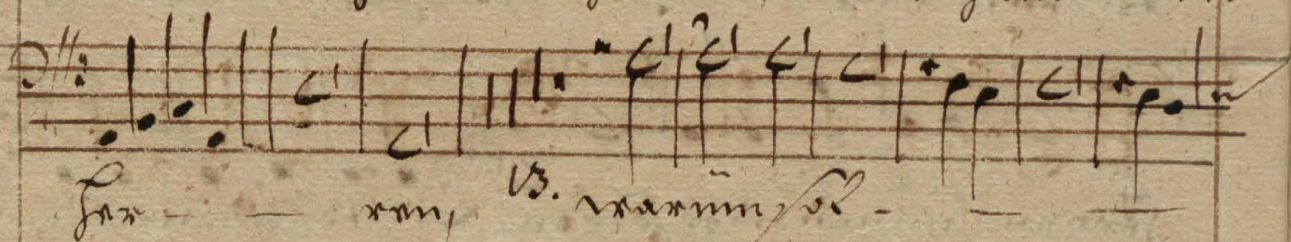 her - - ren, 13. warum sol - - - -